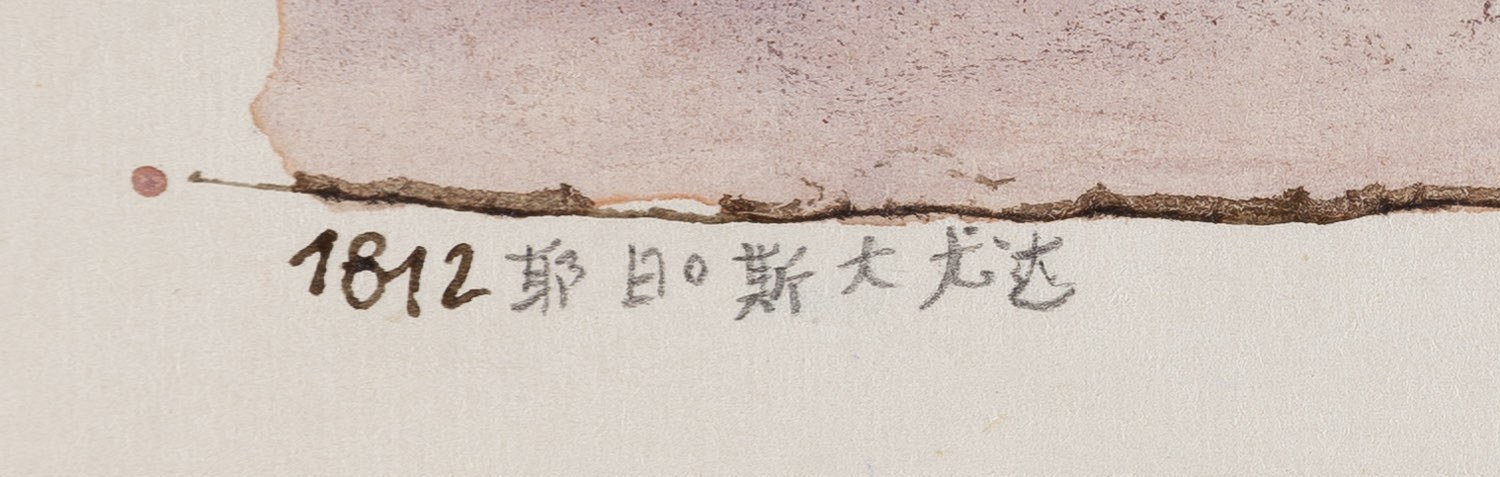 1812 耶日。斯大尤达